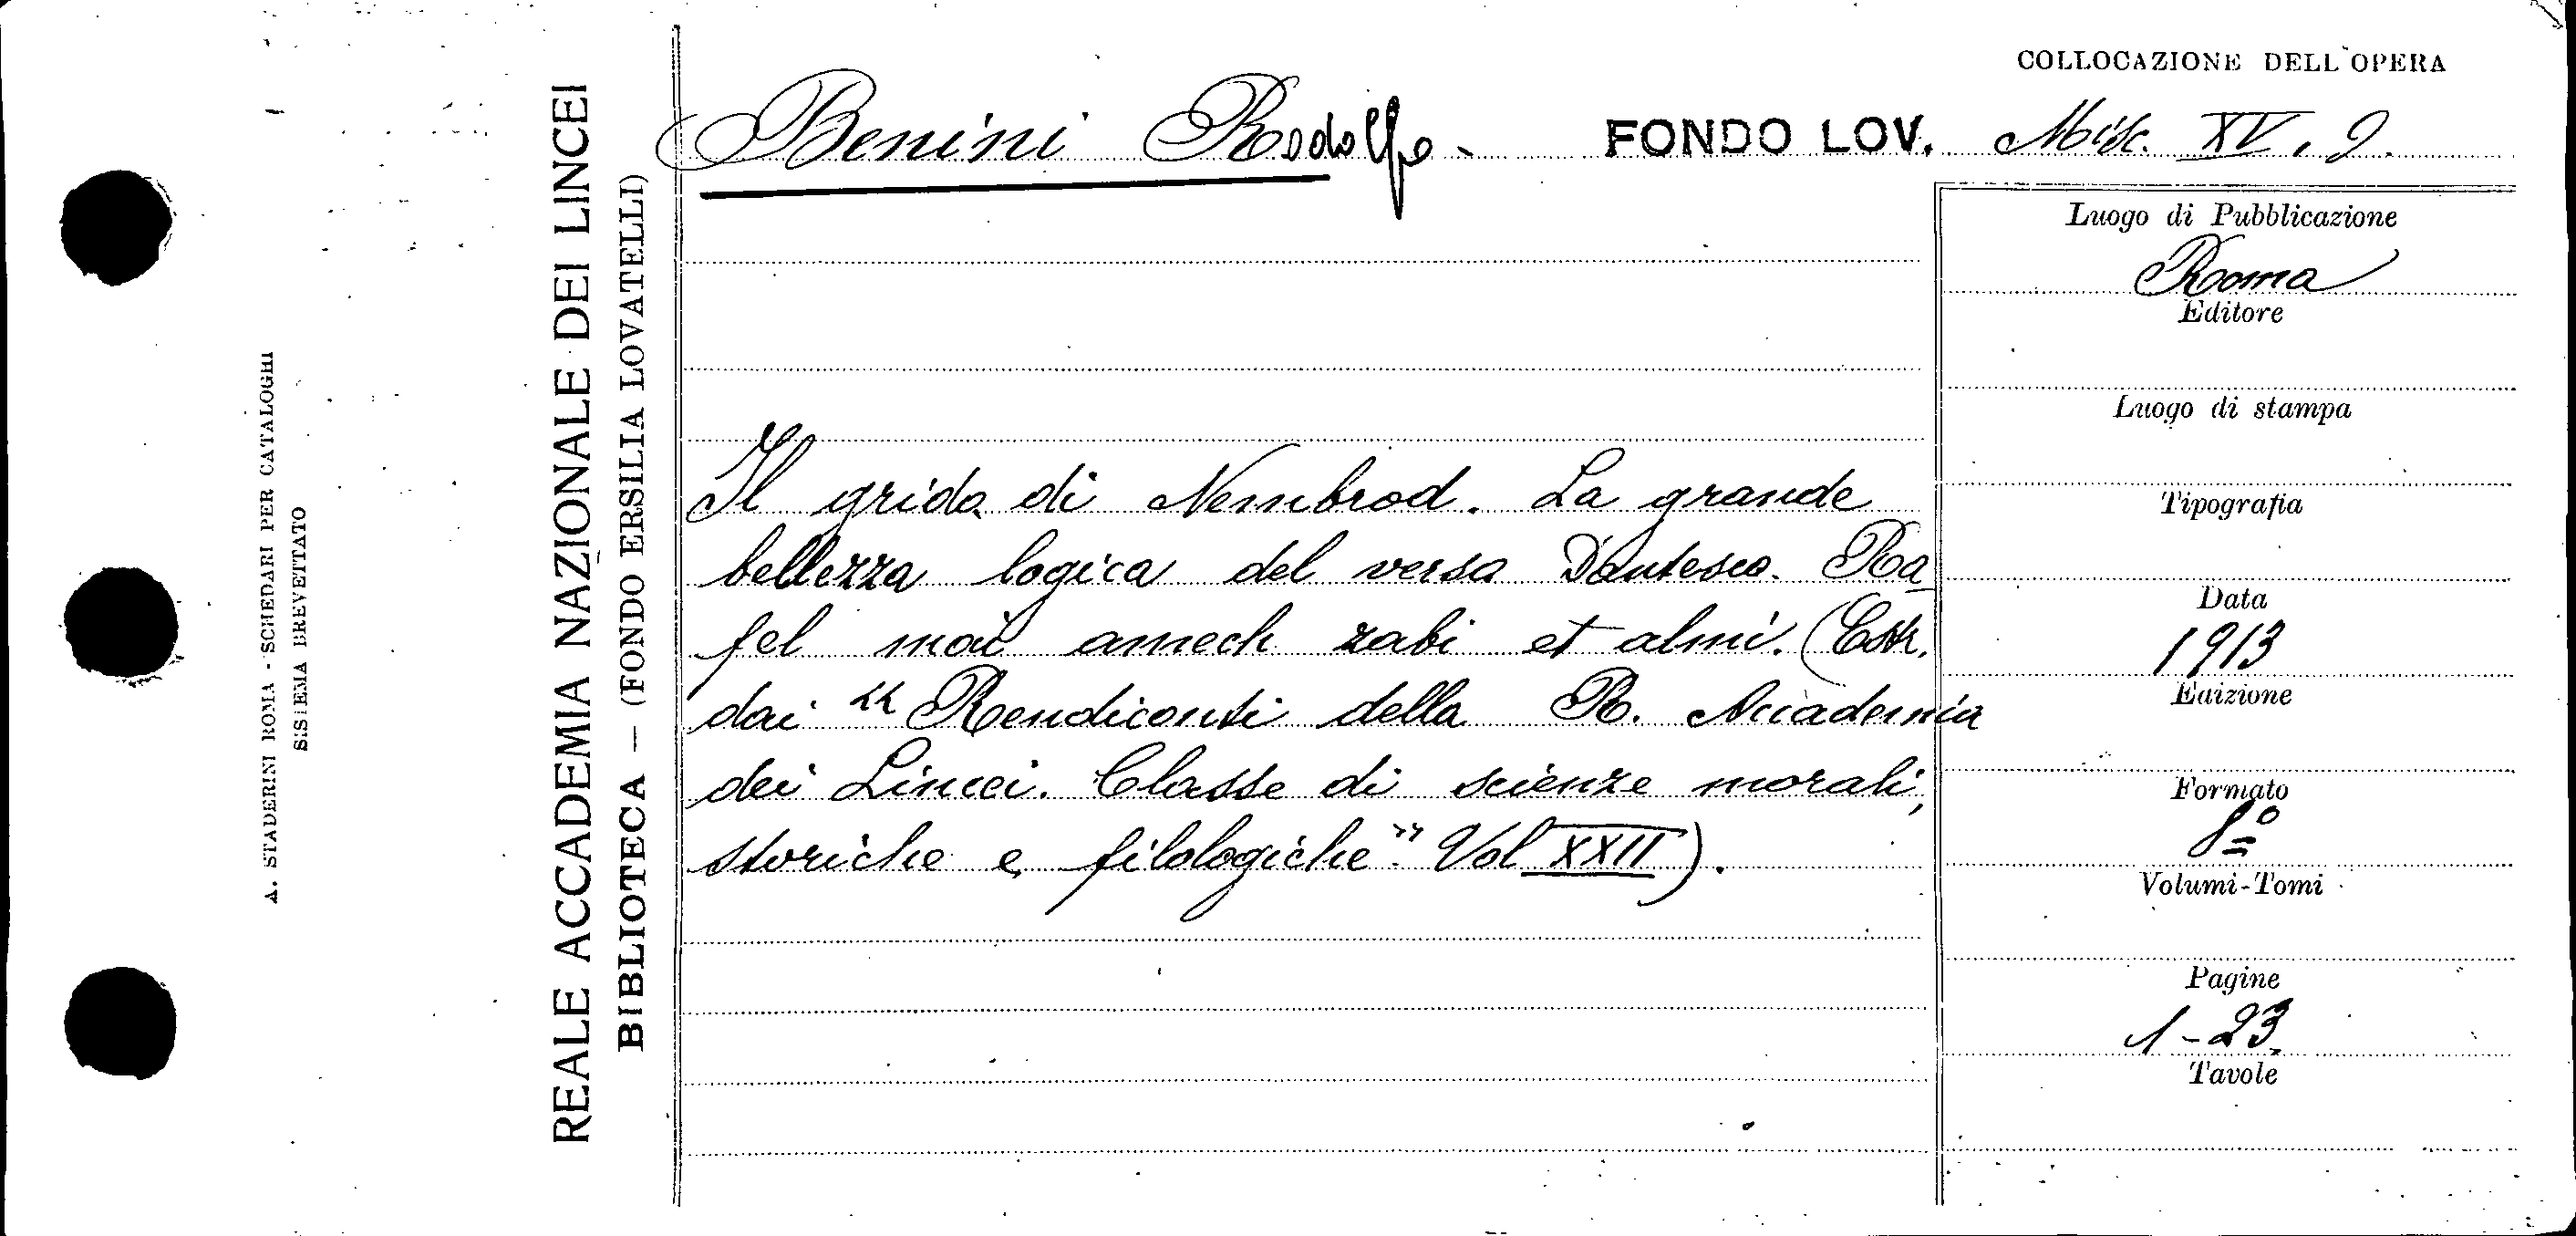 COLLOCAZIONE DELL'OPERA
Benini Rodolfo - FONDO LOV. Misc. XV. 9.
Il grido di Nembrod. La grande
bellezza logica del verso Dantesco. Ra
fel mai amech zabi et almi. (Estr.
dai "Rendiconti della R. Accademia
dei Lincei. Classe di scienze morali,
storiche e filologiche". Vol XXII).
Luogo di Pubblicazione
Roma
Editore
Luogo di stampa
Tipografia
Data
1913
Edizione
Formato
8º
Volumi-Tomi
Pagine
1-23
Tavole
REALE ACCADEMIA NAZIONALE DEI LINCEI
BIBLIOTECA — (FONDO ERSILIA LOVATELLI)
A. STADERINI ROMA - SCHEDARI PER CATALOGHI
SISTEMA BREVETTATO